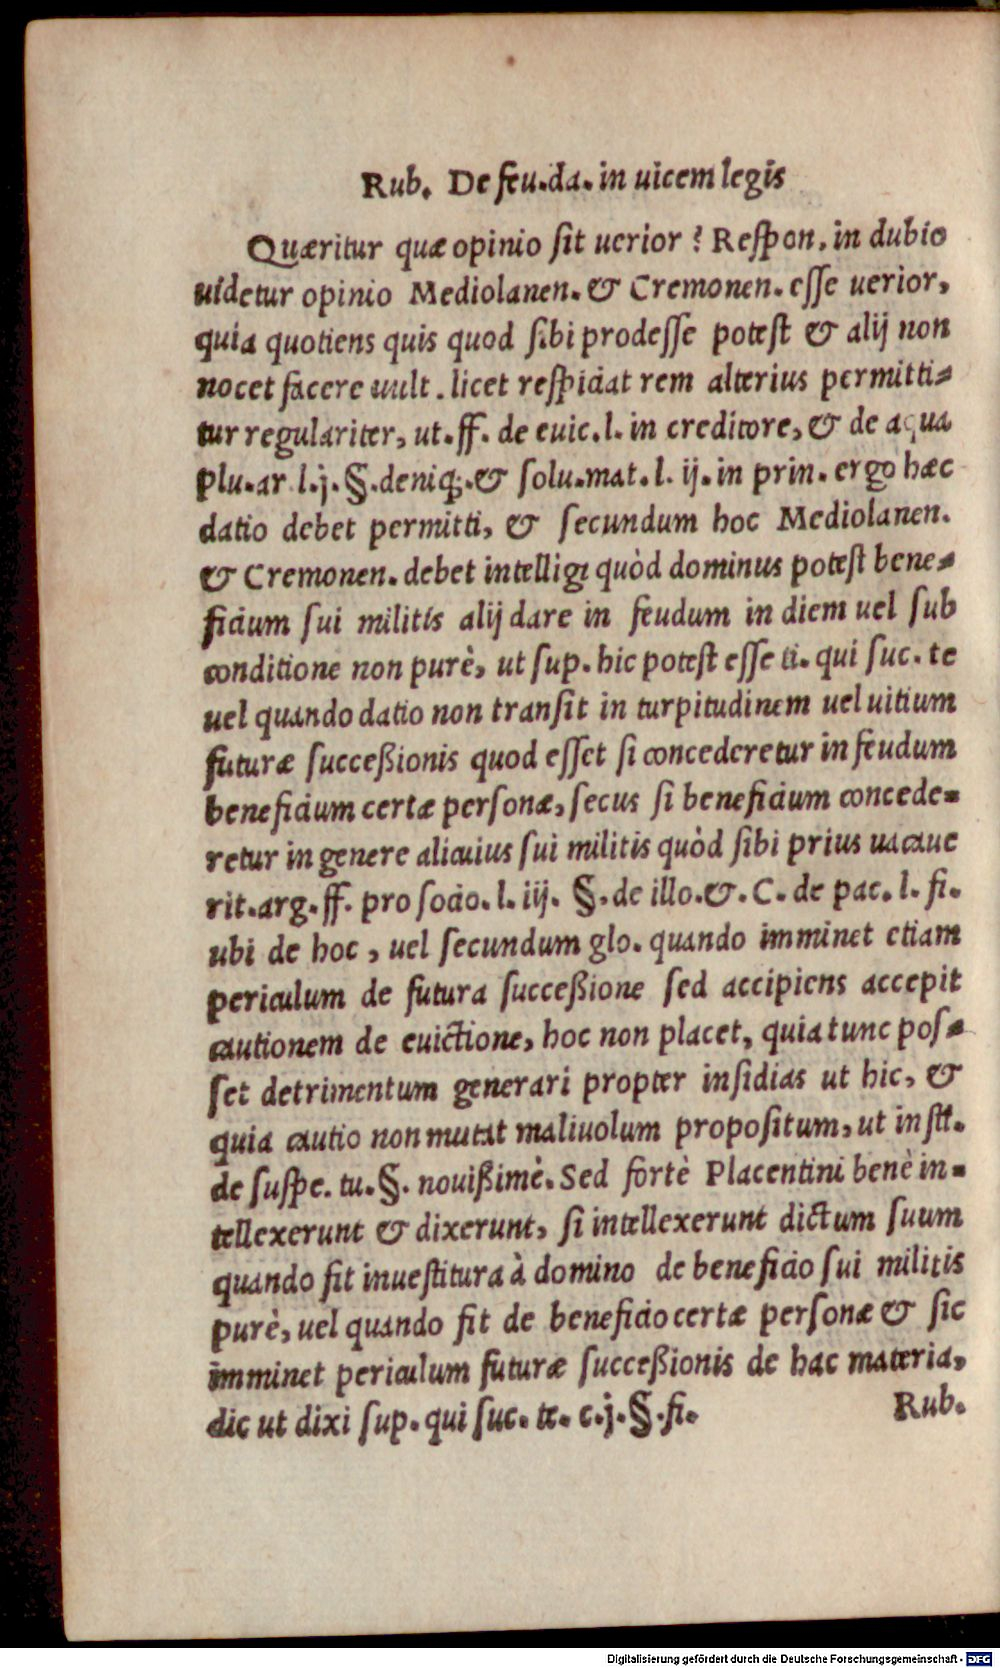 Rub. De feu.da.in uicem legis
Quæritur quæ opinio ſit uerior? Reſpon.in dubio
uidetur opinio Mediolanen. & Cremonen. eſſe uerior,
quia quotiens quis quod ſibi prodeſſe poteſt & alij non
nocet facere uult . licet reſpiciat rem alterius permitti-
tur regulariter, ut.ff. de euic.l. in creditore, & de aqua
plu.ar l.j.§.deniq;.& ſolu.mat.l. ij.in prin. ergo hæc
datio debet permitti, & ſecundum hoc Mediolanen.
& Cremonen. debet intelligi quòd dominus poteſt bene-
ficium ſui militis alij dare in feudum in diem uel ſub
conditione non purè, ut ſup. hic poteſt eſſe ti. qui ſuc. te
uel quando datio non tranſit in turpitudinem uel uitium
futuræ ſucceßionis quod eſſet ſi concederetur in feudum
beneficium certæ perſonæ, ſecus ſi beneficium concede-
retur in genere alicuius ſui militis quòd ſibi prius uacaue
rit.arg.ff. pro ſocio.l. iij. §.de illo.&.C. de pac. l. fi.
ubi de hoc , uel ſecundum glo. quando imminet etiam
periculum de futura ſucceßione ſed accipiens accepit
cautionem de euictione, hoc non placet, quia tunc poſ-
ſet detrimentum generari propter inſidias ut hic, &
quia cautio non mutat maliuolum propoſitum, ut inſtt.
de ſuſpe. tu.§. nouißimè. Sed fortè Placentini benè in-
tellexerunt & dixerunt, ſi intellexerunt dictum ſuum
quando fit inueſtitura à domino de beneficio ſui militis
purè, uel quando fit de beneficio certæ perſonæ & ſic
imminet periculum futuræ ſucceßionis de hac materia,
dic ut dixi ſup. qui ſuc. te. c.j.§.fi.
Rub.
Digitalisierung gefördert durch die Deutsche Forschungsgemeinschaft - DFG